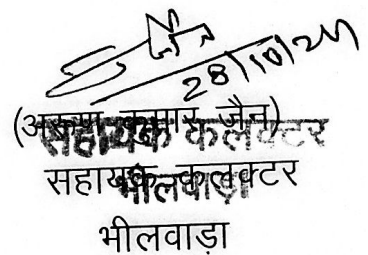 28/10/24
(अरुण कुमार जैन)
सहायक कलक्टर
सहायक कलक्टर
भीलवाड़ा
भीलवाड़ा